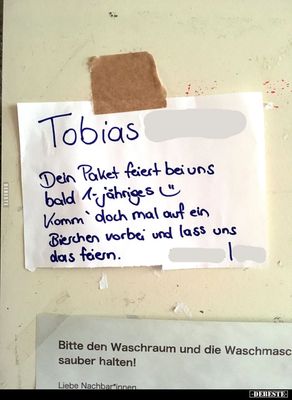 Tobias
Dein Paket feiert bei uns
bald 1-jähriges
Komm' doch mal auf ein
Bierchen vorbei und lass uns
das feiern.
Bitte den Waschraum und die Waschmasc
sauber halten!
Liebe Nachbar*innen
-DEBESTE-